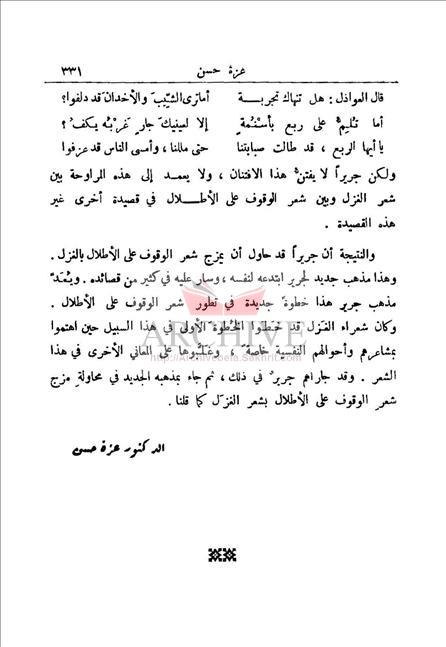 عزة حسن ٣٣١
قال العواذل: هل تنهاك تجربــــة أما ترى الشَّيْبَ والأخدان قد دلفوا؟
أما تُلِمُّ على ربع بأسْنُمةٍ إلا لعينيك جارٍ غَرْبُه يكفُ؟
يا أيها الربع، قد طالت صبابتنا حتى مللنا، وأمسى الناس قد عزفوا
ولكن جريراً لا يفتن هذا الافتنان، ولا يعمــد إلى هذه المراوحة بين
شعر الغزل وبين شعر الوقوف على الأطــلال في قصيدة أخرى غير
هذه القصيدة.
والنتيجة أن جريراً قد حاول أن يمزج شعر الوقوف على الأطلال بالغزل.
وهذا مذهب جديد لجرير ابتدعه لنفسه، وسار عليه في كثير من قصائده. ويُعَدّ
مذهب جرير هذا خطوةً جديدة في تطور شعر الوقوف على الأطلال.
وكان شعراء الغزل قد خَطَوا الخُطوةَ الأولى في هذا السبيل حين اهتموا
بمشاعرهم وأحوالهم النفسية خاصةً، وغَلَّبوها على المعاني الأخرى في هذا
الشعر. وقد جاراهم جريرٌ في ذلك، ثم جاء بمذهبه الجديد في محاولةِ مزج
شعرِ الوقوف على الأطلال بشعر الغزَل كما قلنا.
الدكتور عزة حسن
ARCHIVE
http://Archivebeta.Sakhrit.com